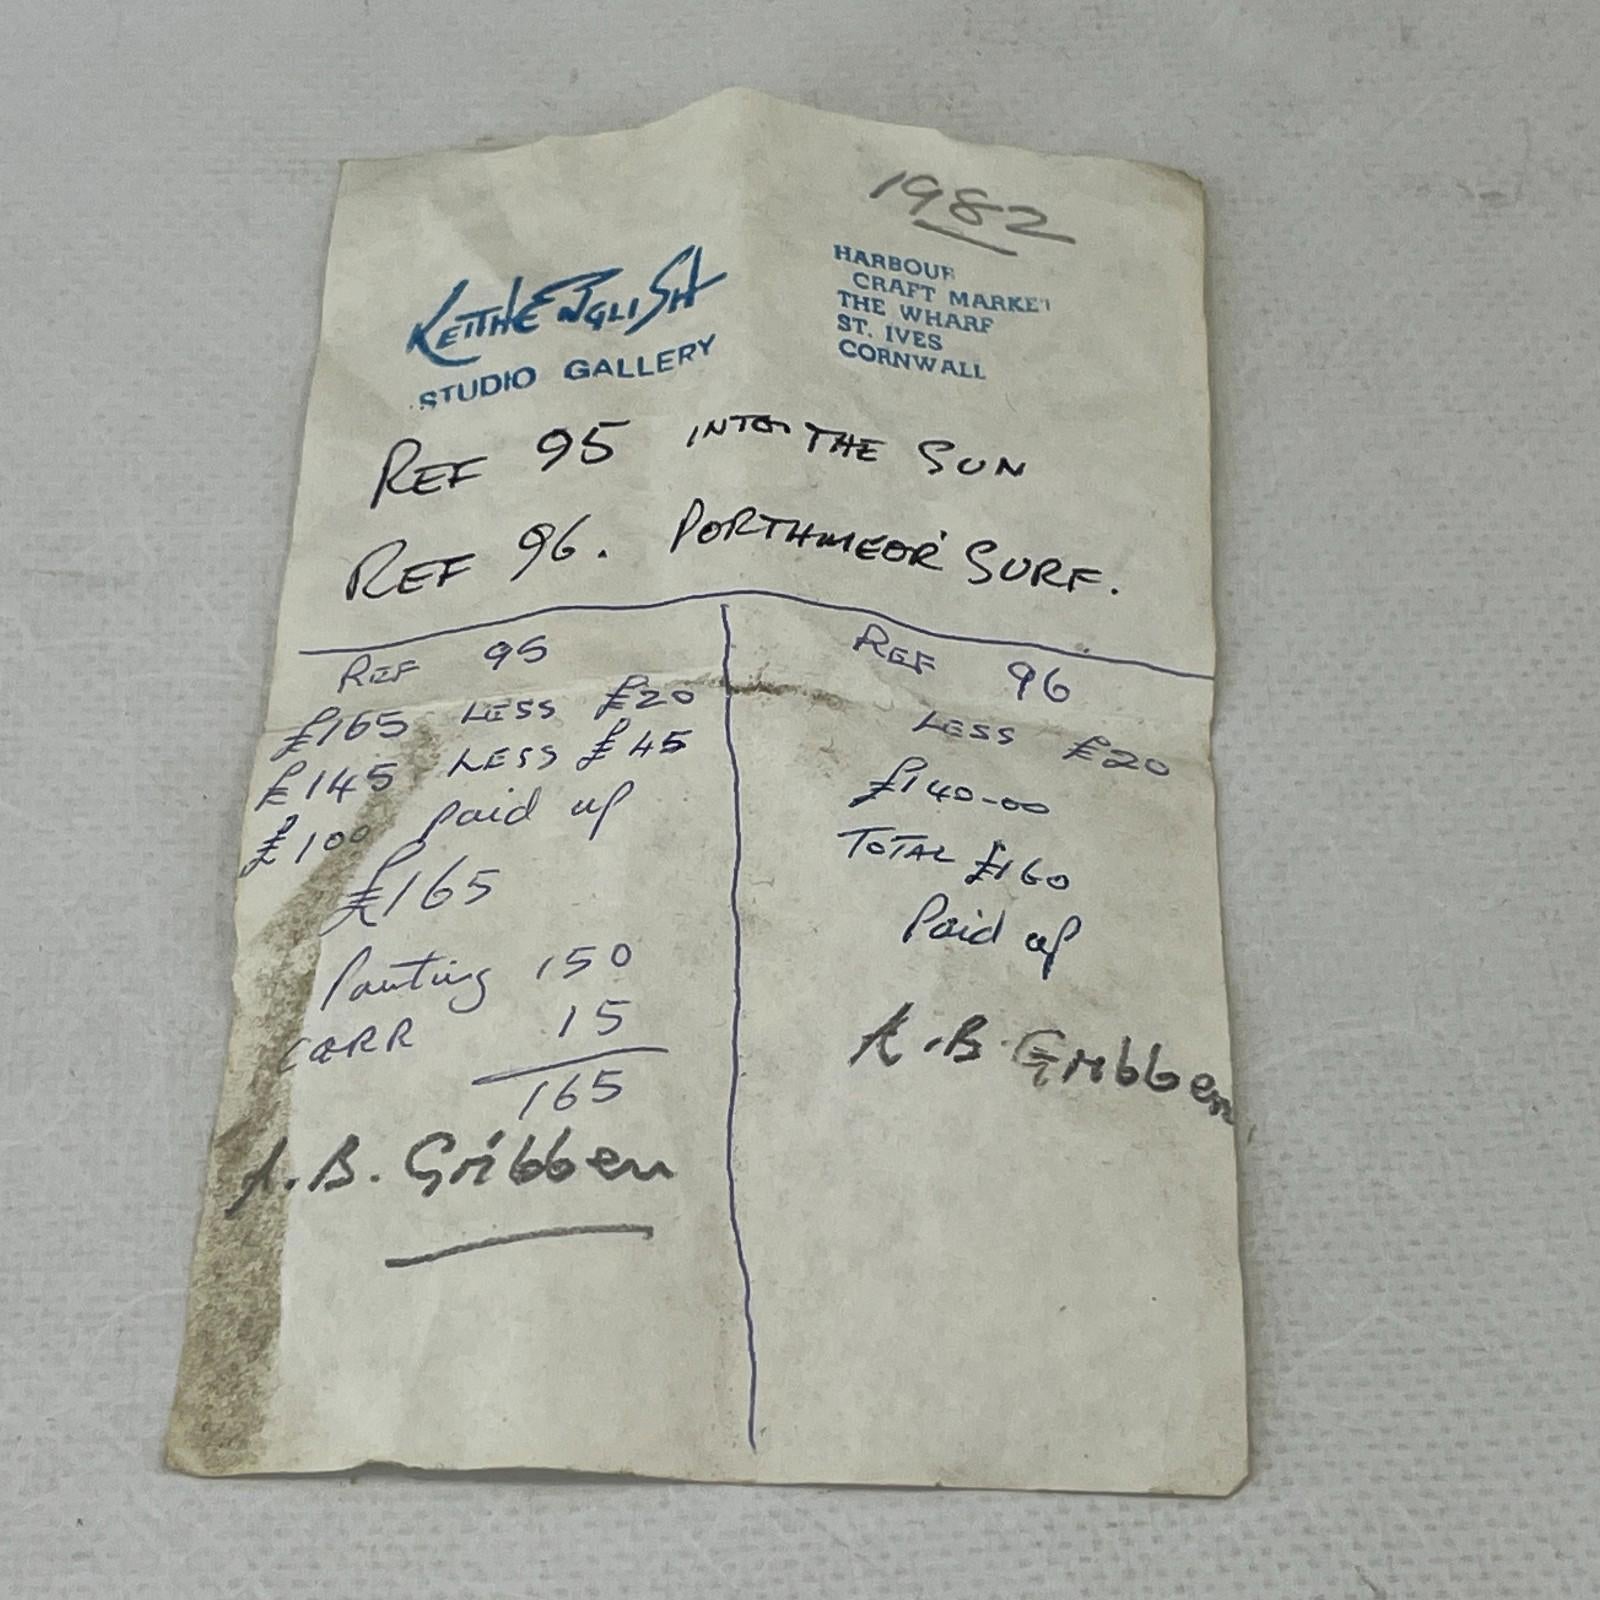 1982
KEITH ENGLISH
STUDIO GALLERY
HARBOUR
CRAFT MARKET
THE WHARF
ST. IVES
CORNWALL
REF 95 INTO THE SUN
REF 96. PORTHMEOR SURF.
REF 95
£165 LESS £20
£145 LESS £45
£100 paid up
£165
Painting 150
CARR 15
165
A.B. Gribben
REF 96
LESS £20
£140-00
TOTAL £160
Paid up
A.B. Gribben